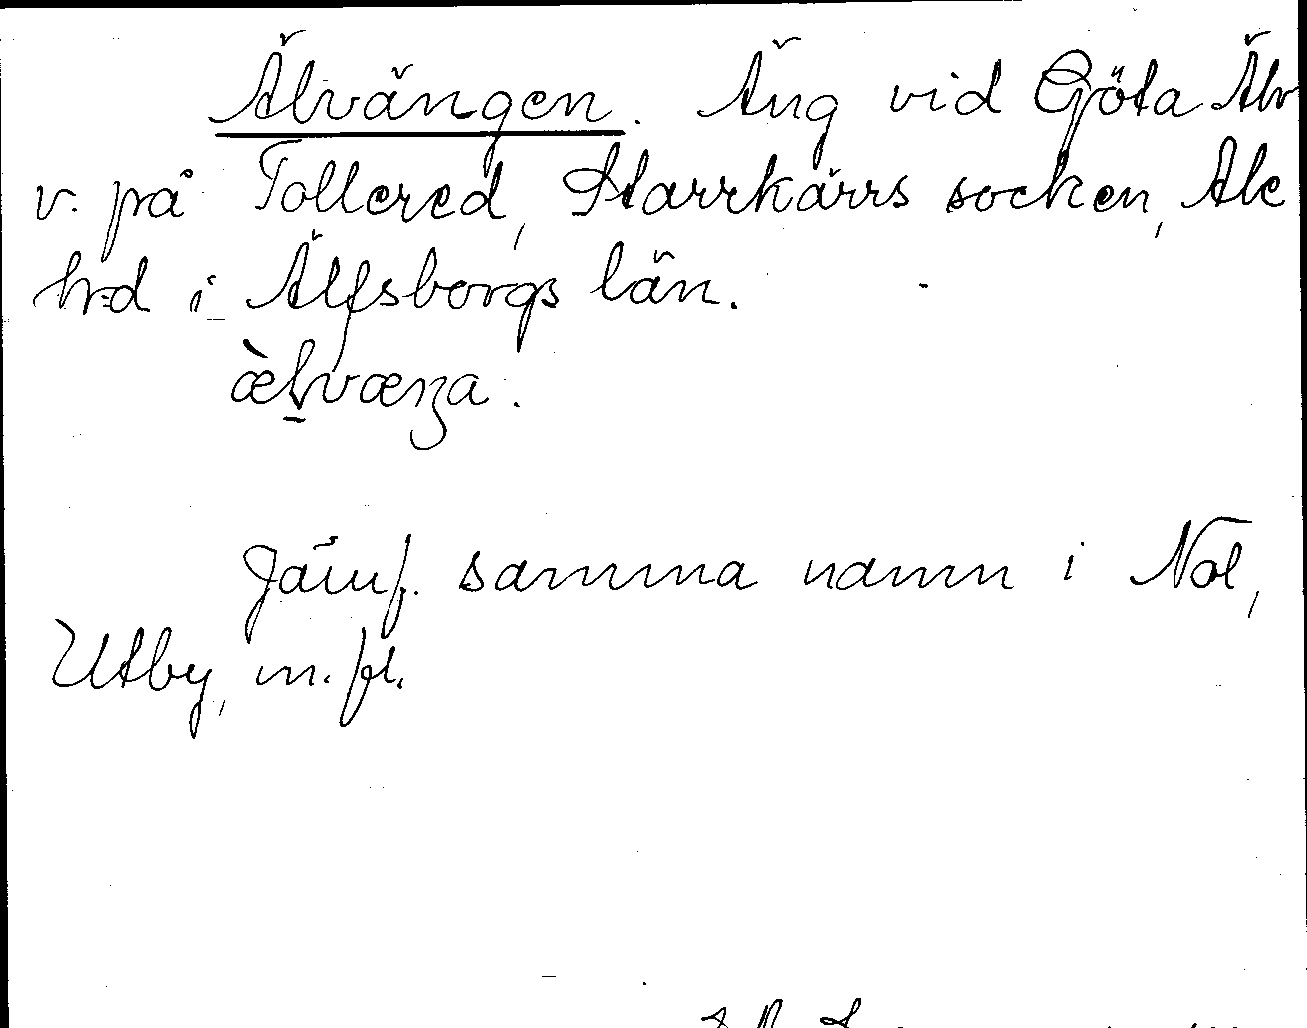 Älvängen. Äng vid Göta Älv
v. på Tollered, Starrkärrs socken, Ale
hrd i Älfsborgs län.
æ̀lvæŋa.
Jämf. samma namn i Nol,
Utby, m. fl.